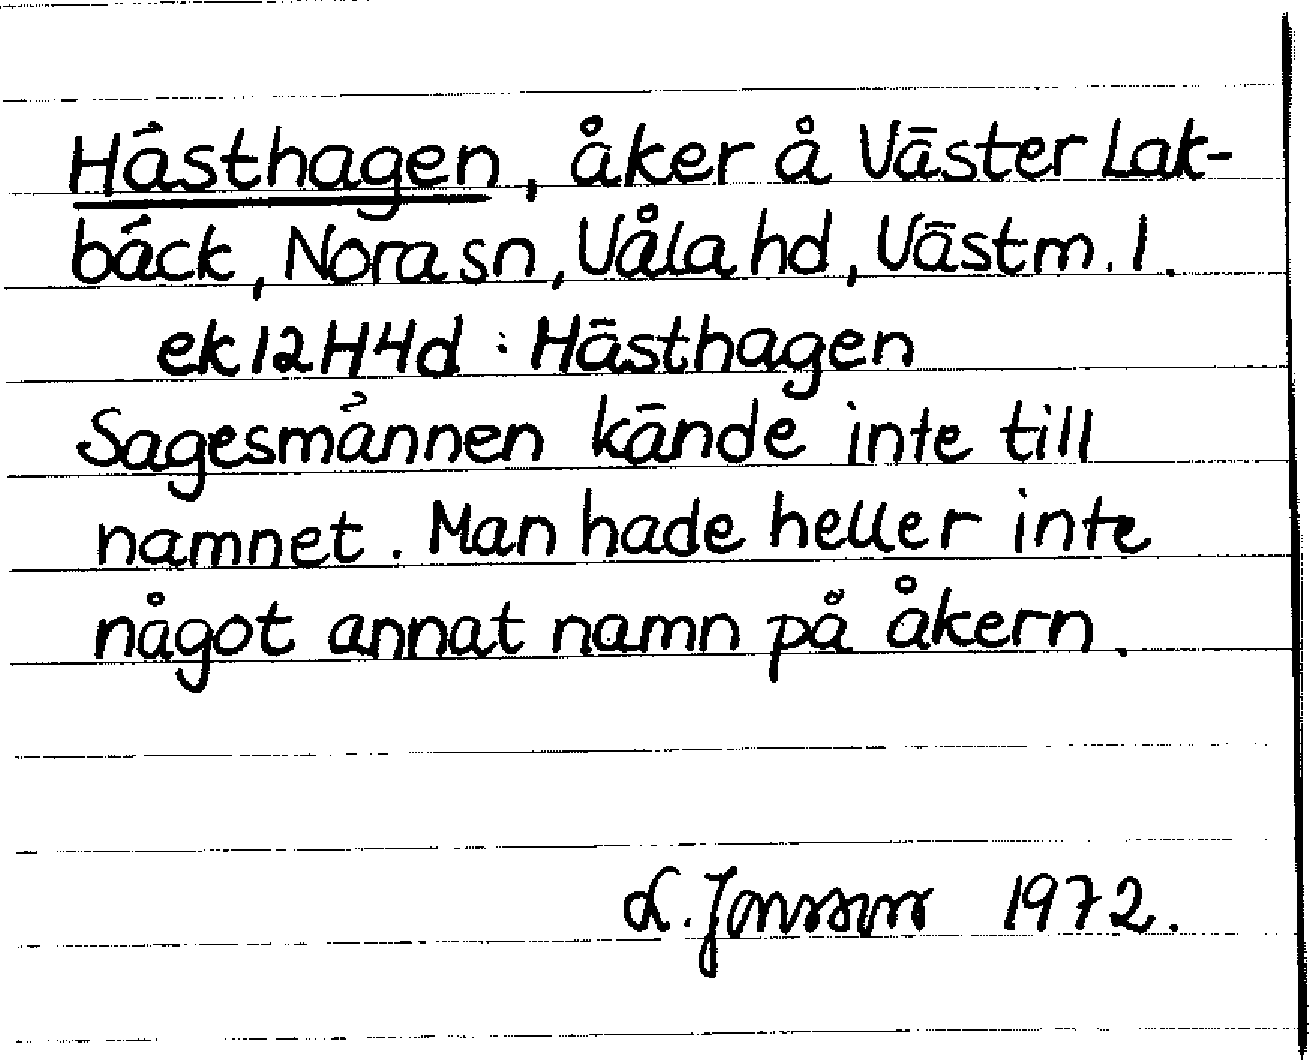 Hästhagen, åker å Väster Lak-
bäck, Nora sn, Våla hd, Västm. l.
ek 12H4d : Hästhagen
Sagesmännen kände inte till
namnet. Man hade heller inte
något annat namn på åkern.
L. Jonsson 1972.